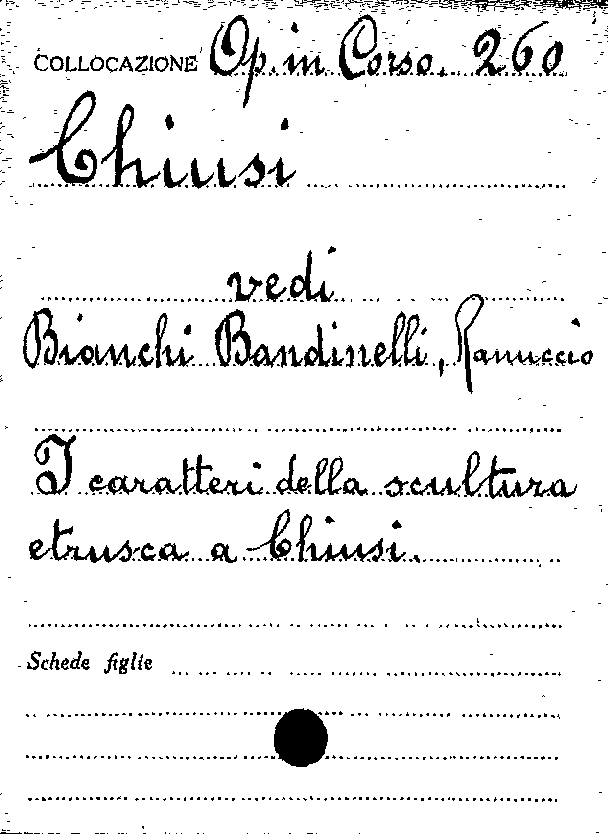 COLLOCAZIONE Op. in Corso. 260
Chiusi
vedi
Bianchi Bandinelli, Ranuccio
I caratteri della scultura
etrusca a Chiusi.
Schede figlie